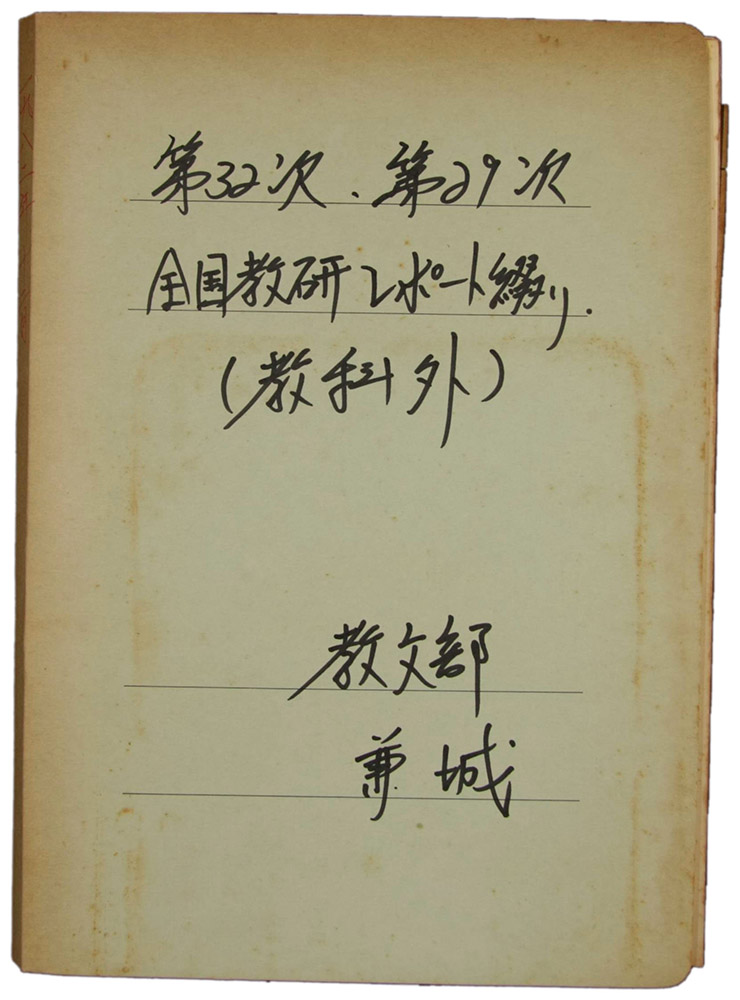 第32次、第29次
全国教研レポート綴り.
(教科外)
教文部
兼城